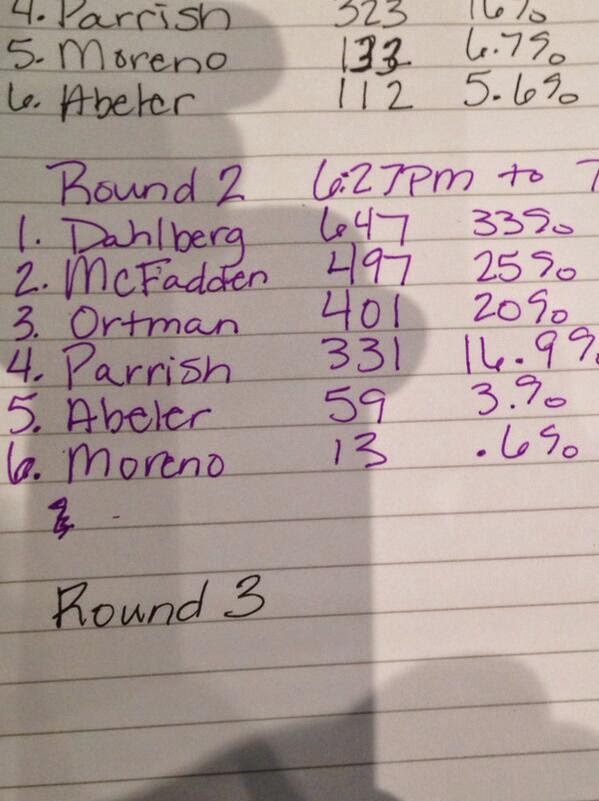 4. Parrish 323 16%
5. Moreno 133 6.7%
6. Abeler 112 5.6%
Round 2 6:27pm to 7
1. Dahlberg 647 33%
2. McFadden 497 25%
3. Ortman 401 20%
4. Parrish 331 16.9%
5. Abeler 59 3.%
6. Moreno 13 .6%
Round 3